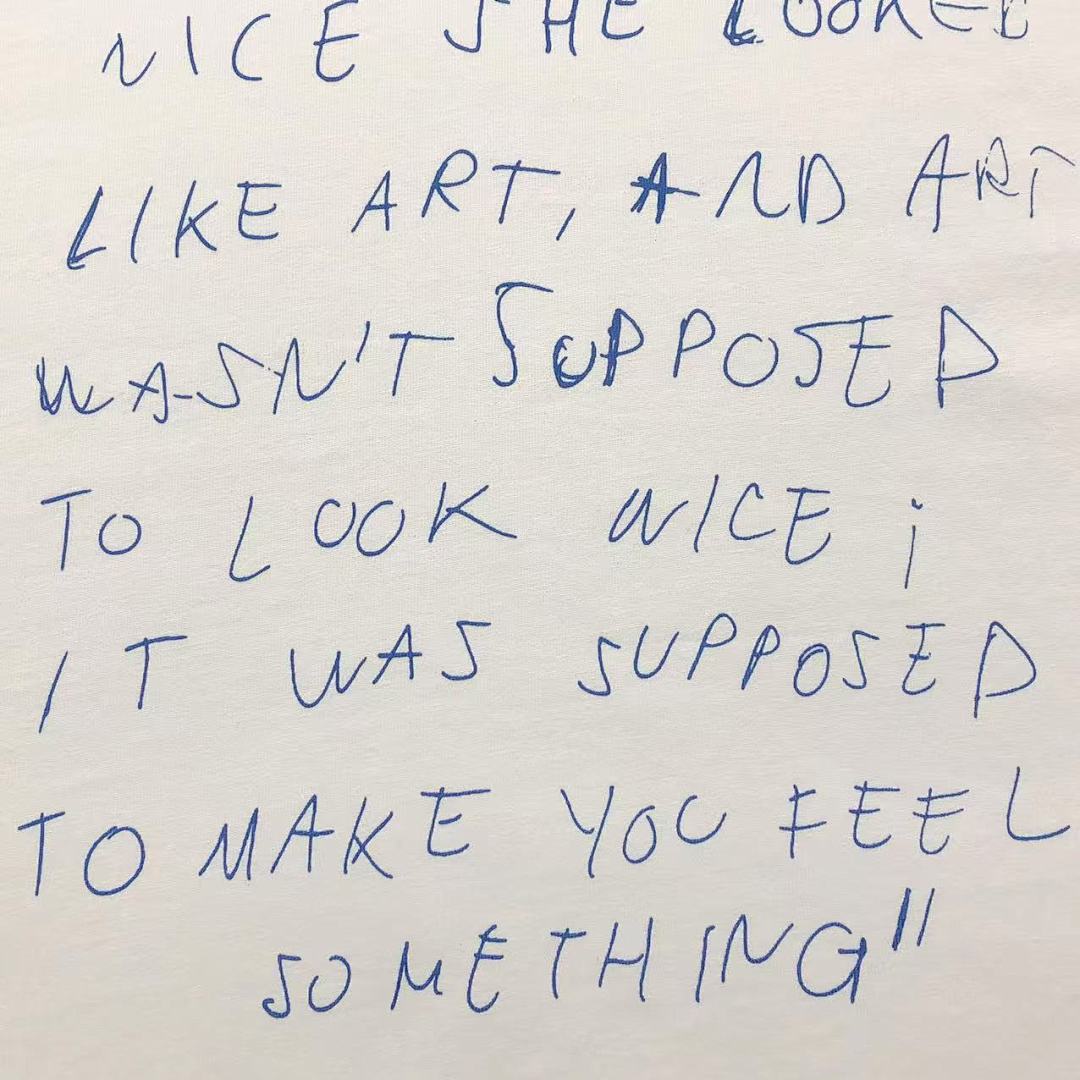 NICE SHE LOOKED
LIKE ART, AND ART
WASN'T SUPPOSED
TO LOOK NICE;
IT WAS SUPPOSED
TO MAKE YOU FEEL
SOMETHING"